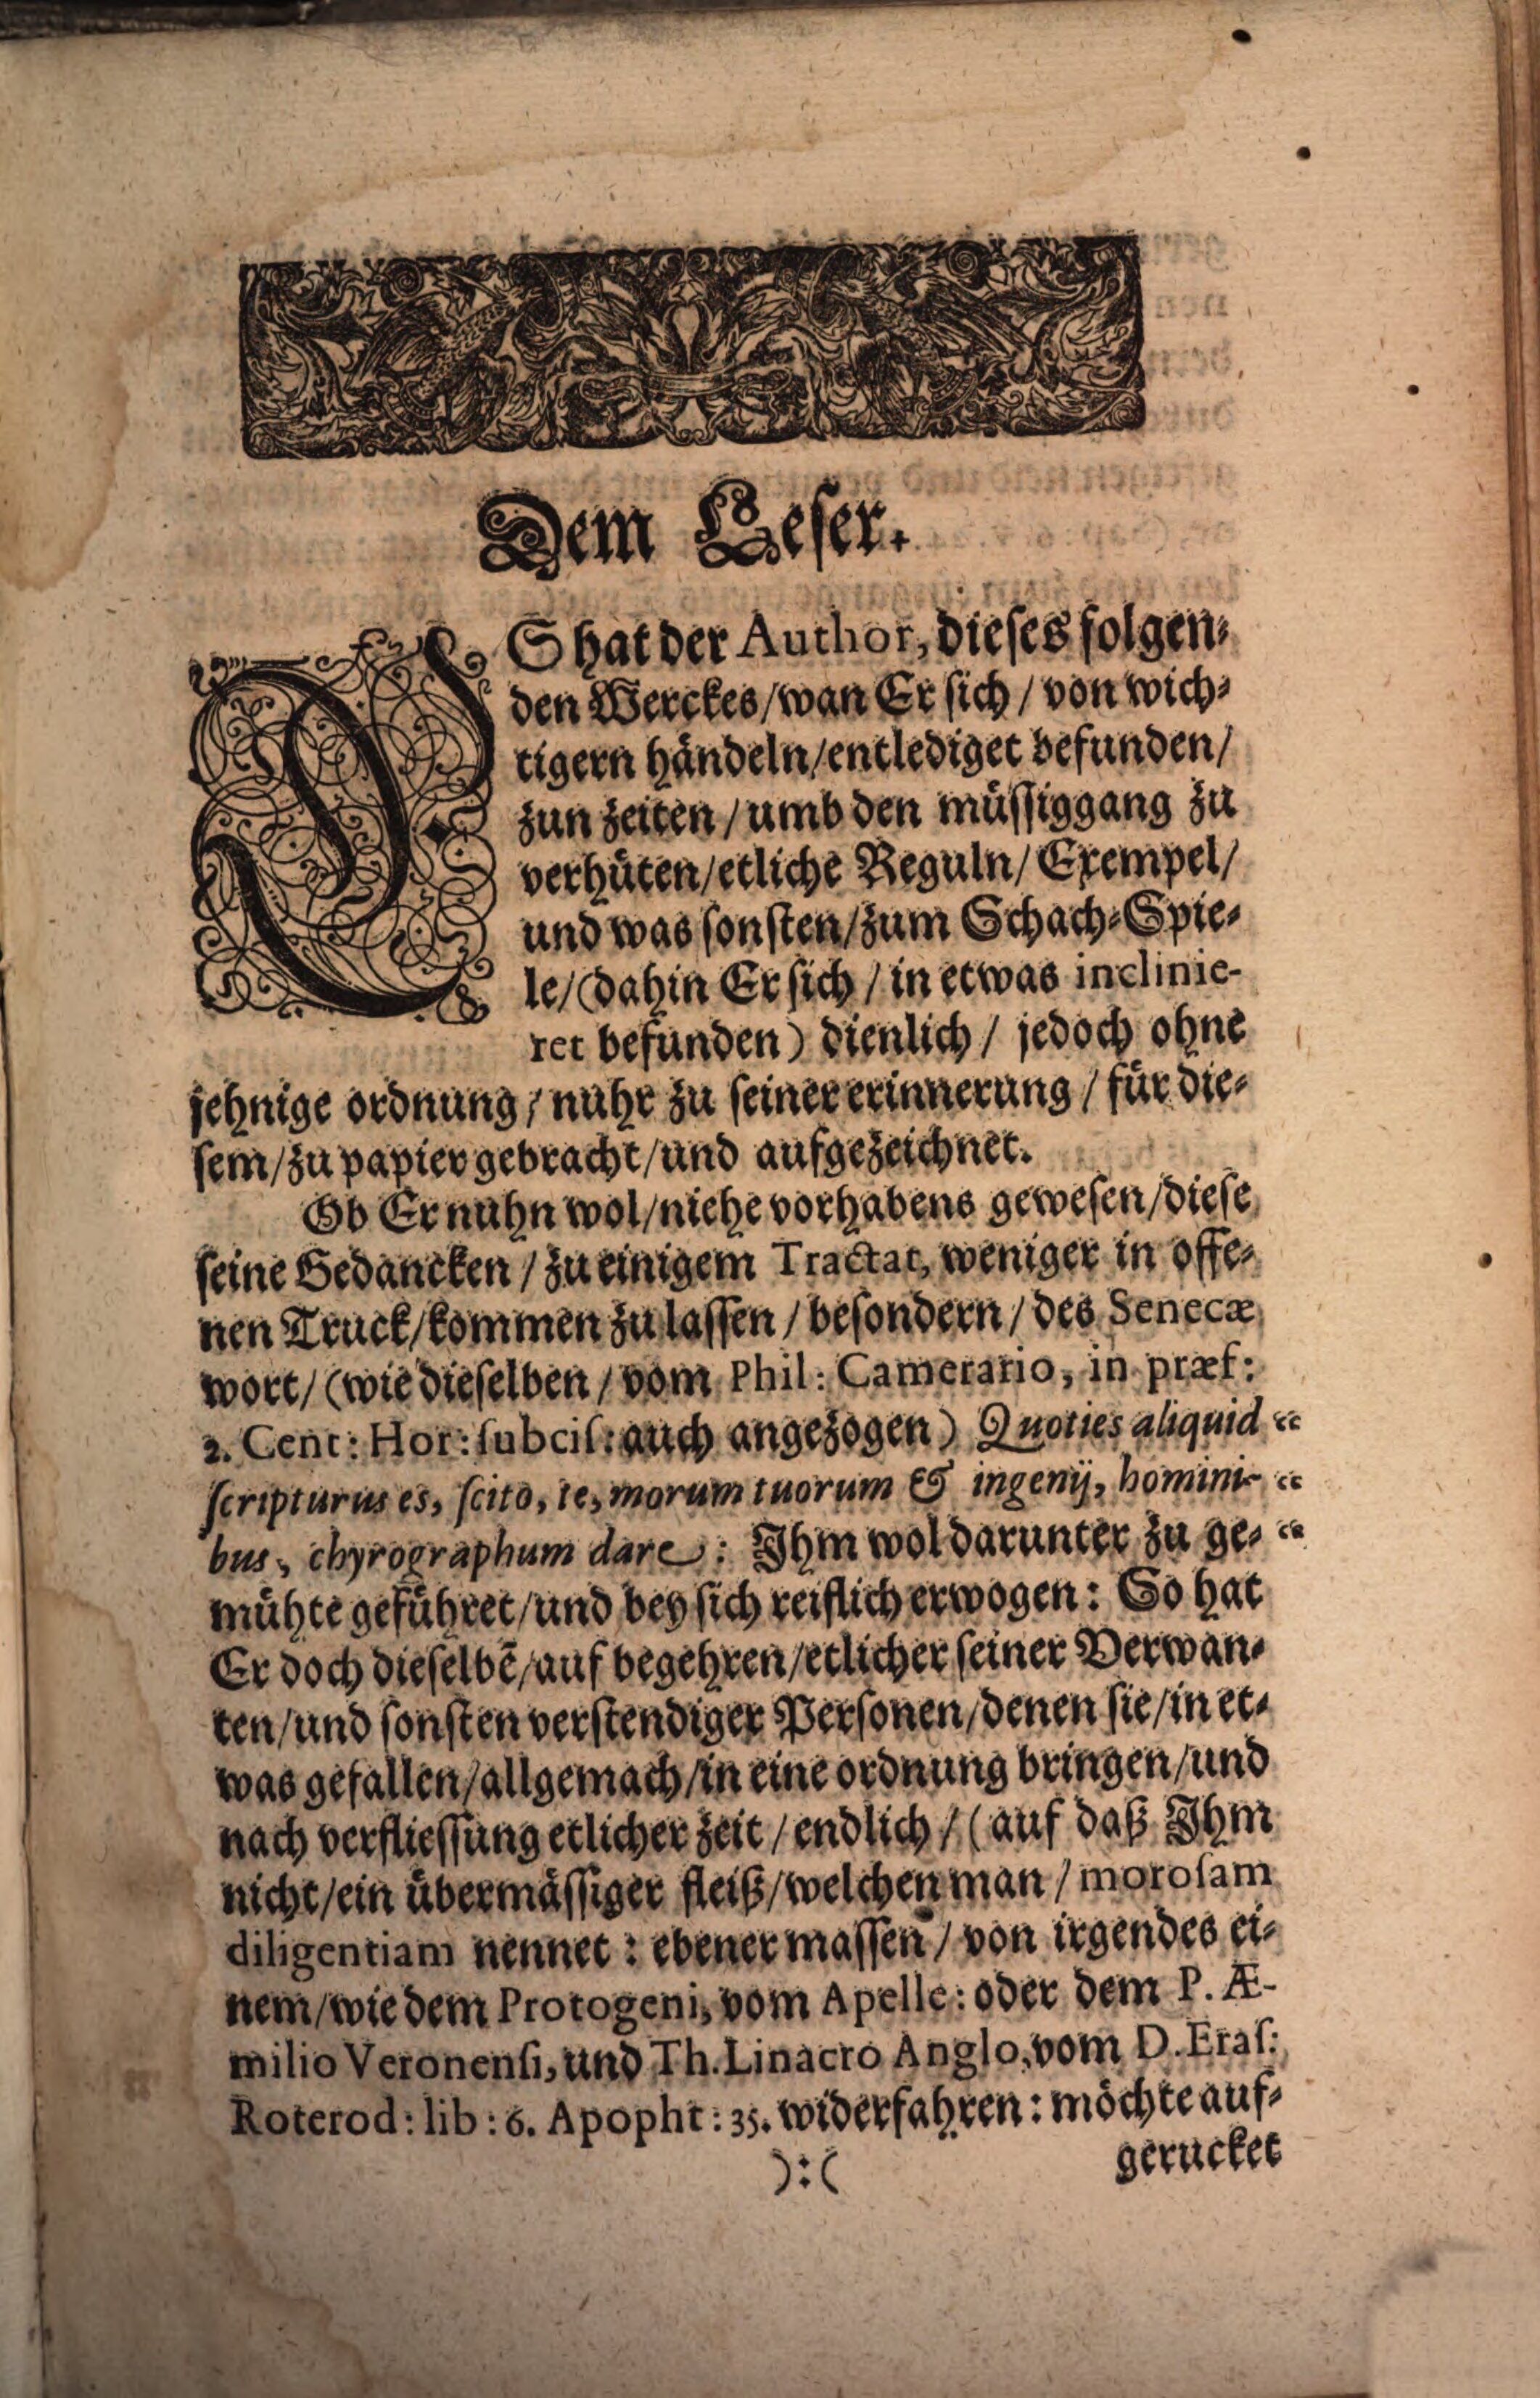 Dem Leser.
ES hat der Author, dieses folgen-
den Werckes/wan Er sich/von wich-
tigern håndeln/entlediget befunden/
zun zeiten/umb den müssiggang zu
verhüten/etliche Reguln/Exempel/
und was sonsten/zum Schach-Spie-
le/(dahin Er sich/in etwas inclinie-
ret befunden) dienlich/jedoch ohne
jehnige ordnung/nuhr zu seiner erinnerung/für die-
sem/zu papier gebracht/und aufgezeichnet.
Ob Er nuhn wol/niehe vorhabens gewesen/diese
seine Gedancken/zu einigem Tractat, weniger in offe-
nen Truck/kommen zu lassen/besondern/des Senecæ
wort/(wie dieselben/vom Phil: Camerario, in præf:
2. Cent: Hor: subcis: auch angezogen) Quoties aliquid “
scripturus es, scito, te, morum tuorum & ingenij, homini- “
bus, chyrographum dare: Ihm wol darunter zu ge- “
mühte geführet/und bey sich reiflich erwogen: So hat
Er doch dieselbē/auf begehren/etlicher seiner Verwan-
ten/und sonsten verstendiger Personen/denen sie/in et-
was gefallen/allgemach/in eine ordnung bringen/und
nach verfliessung etlicher zeit/endlich/(auf daß Ihm
nicht/ein übermässiger fleiß/welchen man/morosam
diligentiam nennet: ebener massen/von irgendes ei-
nem/wie dem Protogeni, vom Apelle: oder dem P. Æ-
milio Veronensi, und Th. Linacro Anglo, vom D. Eras:
Roterod: lib: 6. Apopht: 35. widerfahren: möchte auf-
):( gerucket